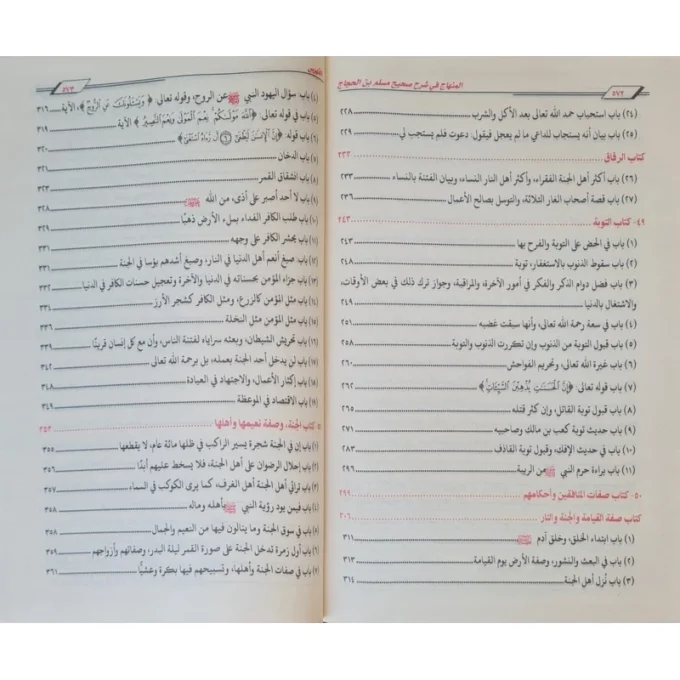 المنهاج في شرح صحيح مسلم بن الحجاج
٥٧٢
(٢٤) باب استحباب حمد الله تعالى بعد الأكل والشرب ٢٢٨
(٢٥) باب بيان أنه يستجاب للداعي ما لم يعجل فيقول: دعوت فلم يستجب لي ٢٢٩
كتاب الرقاق ٢٣٢
(٢٦) باب أكثر أهل الجنة الفقراء، وأكثر أهل النار النساء، وبيان الفتنة بالنساء ٢٣٣
(٢٧) باب قصة أصحاب الغار الثلاثة، والتوسل بصالح الأعمال ٢٣٦
٤٩- كتاب التوبة ٢٤٣
(١) باب في الحض على التوبة والفرح بها ٢٤٣
(٢) باب سقوط الذنوب بالاستغفار، توبة ٢٤٨
(٣) باب فضل دوام الذكر والفكر في أمور الآخرة، والمراقبة، وجواز ترك ذلك في بعض الأوقات،
والاشتغال بالدنيا ٢٤٨
(٤) باب في سعة رحمة الله تعالى، وأنها سبقت غضبه ٢٥١
(٥) باب قبول التوبة من الذنوب وإن تكررت الذنوب والتوبة ٢٥٨
(٦) باب غيرة الله تعالى، وتحريم الفواحش ٢٦٠
(٧) باب قوله تعالى: ﴿إِنَّ الْحَسَنَاتِ يُذْهِبْنَ السَّيِّئَاتِ﴾ ٢٦٢
(٨) باب قبول توبة القاتل، وإن كثر قتله ٢٦٥
(٩) باب حديث توبة كعب بن مالك وصاحبيه ٢٦٨
(١٠) باب في حديث الإفك، وقبول توبة القاذف ٢٨٣
(١١) باب براءة حرم النبي ﷺ من الريبة ٢٩٦
٥٠- كتاب صفات المنافقين وأحكامهم ٢٩٩
كتاب صفة القيامة والجنة والنار ٣٠٦
(١) باب ابتداء الخلق، وخلق آدم ﷺ ٣١١
(٢) باب في البعث والنشور، وصفة الأرض يوم القيامة ٣١٣
(٣) باب نُزل أهل الجنة ٣١٤
الفهرس
٥٧٣
(٤) باب: سؤال اليهود النبي ﷺ عن الروح، وقوله تعالى: ﴿وَيَسْأَلُونَكَ عَنِ الرُّوحِ﴾ الآية ٣١٦
(٥) باب في قوله تعالى: الآية ٣١٩
(٦) باب قوله: ﴿إِنَّ الْإِنسَانَ لَيَطْغَى أَن رَّآهُ اسْتَغْنَى﴾ ٣٢٠
باب الدخان ٣٢١
باب انشقاق القمر ٣٢٥
باب لا أحد أصبر على أذى، من الله ﷻ ٣٢٨
باب طلب الكافر الفداء بملء الأرض ذهبًا ٣٢٩
باب يحشر الكافر على وجهه ٣٣١
باب صبغ أنعم أهل الدنيا في النار، وصبغ أشدهم بؤسا في الجنة ٣٣١
باب جزاء المؤمن بحسناته في الدنيا والآخرة وتعجيل حسنات الكافر في الدنيا
باب مثل المؤمن كالزرع، ومثل الكافر كشجر الأرز
باب مثل المؤمن مثل النخلة ٣٣٦
باب تحريش الشيطان، وبعثه سراياه لفتنة الناس، وأن مع كل إنسان قرينًا ٣٣٩
باب لن يدخل أحد الجنة بعمله، بل برحمة الله تعالى ٣٤٢
باب إكثار الأعمال، والاجتهاد في العبادة
باب الاقتصاد في الموعظة ٣٤٩
كتاب الجنة، وصفة نعيمها وأهلها ٣٥٣
باب إن في الجنة شجرة يسير الراكب في ظلها مائة عام، لا يقطعها ٣٥٥
باب إحلال الرضوان على أهل الجنة، فلا يسخط عليهم أبدًا
باب ترائي أهل الجنة أهل الغرف، كما يرى الكوكب في السماء
باب فيمن يود رؤية النبي ﷺ بأهله وماله
باب في سوق الجنة وما ينالون فيها من النعيم والجمال
باب أول زمرة تدخل الجنة على صورة القمر ليلة البدر، وصفاتهم وأزواجهم ٣٥٩
باب في صفات الجنة وأهلها، وتسبيحهم فيها بكرة وعشيًّا ٣٦١